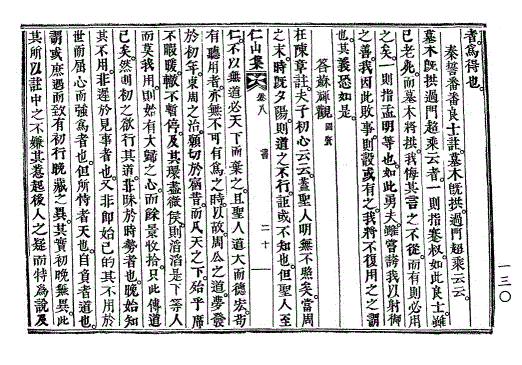 者爲得也
秦誓番番良士註墓木旣拱過門超乘云云
墓木旣拱過門超乘云者一則指蹇叔如此良士雖
已老免而墓木將拱我悔其言之不從而有則必用
之矣一則指孟明等也如此勇夫雖嘗誇我以射御
之善我因此敗事則設或有之我將不復用之之謂
也其義恐如是
答蘇輝觀
枉陳章註夫子初心云云蓋聖人明無不照矣當周
之末時旣夕陽則道之不行詎或不知也但聖人至
仁山集 卷八 書 二十
仁不以無道必天下而棄之且聖人道大而德宏苟
有聽用者亦無不可有爲之時以故周公之道夢發
於初年東周之治願切於昔而凡天之下殆乎席
不暇暖轍不暫停及其環盡侯則滔滔是下等人
而莫我用則始有大歸之心而餘景收拾只此傳道
已矣然則初之欲行其道非昧於時勢者也晚始知
其不用非遲於見事者也又非即始已的其不用於
世而屈心而強焉者也但所恃者天也自負者道也
謂或庶遇而致有初行晚藏之異其實初晚無異此
其所以註中之不嫌其惹起後人之疑而特爲說及
一三〇